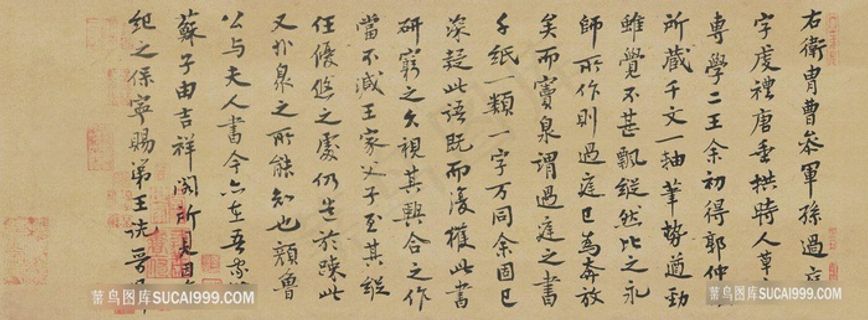 右衛胄曹參軍孫過
字虔禮唐垂拱時人草
專學二王余初得郭仲
所藏千文一軸筆勢遒勁
雖覺不甚飄縱然比之永
師所作則過庭已為奔放
矣而竇泉謂過庭之書
千紙一類一字万同余固已
深疑此語既而復獲此書
研窮之久視其興合之作
當不減王家父子至其縱
任優悠之處仍造於疎此
又非泉之所能知也顏魯
公与夫人書今亦在吾家
蘇子由吉祥閣所
紀之保寧賜弟王詵晉
菁鸟图库SUCAI999.COM
菁鸟图库SUCAI999.COM